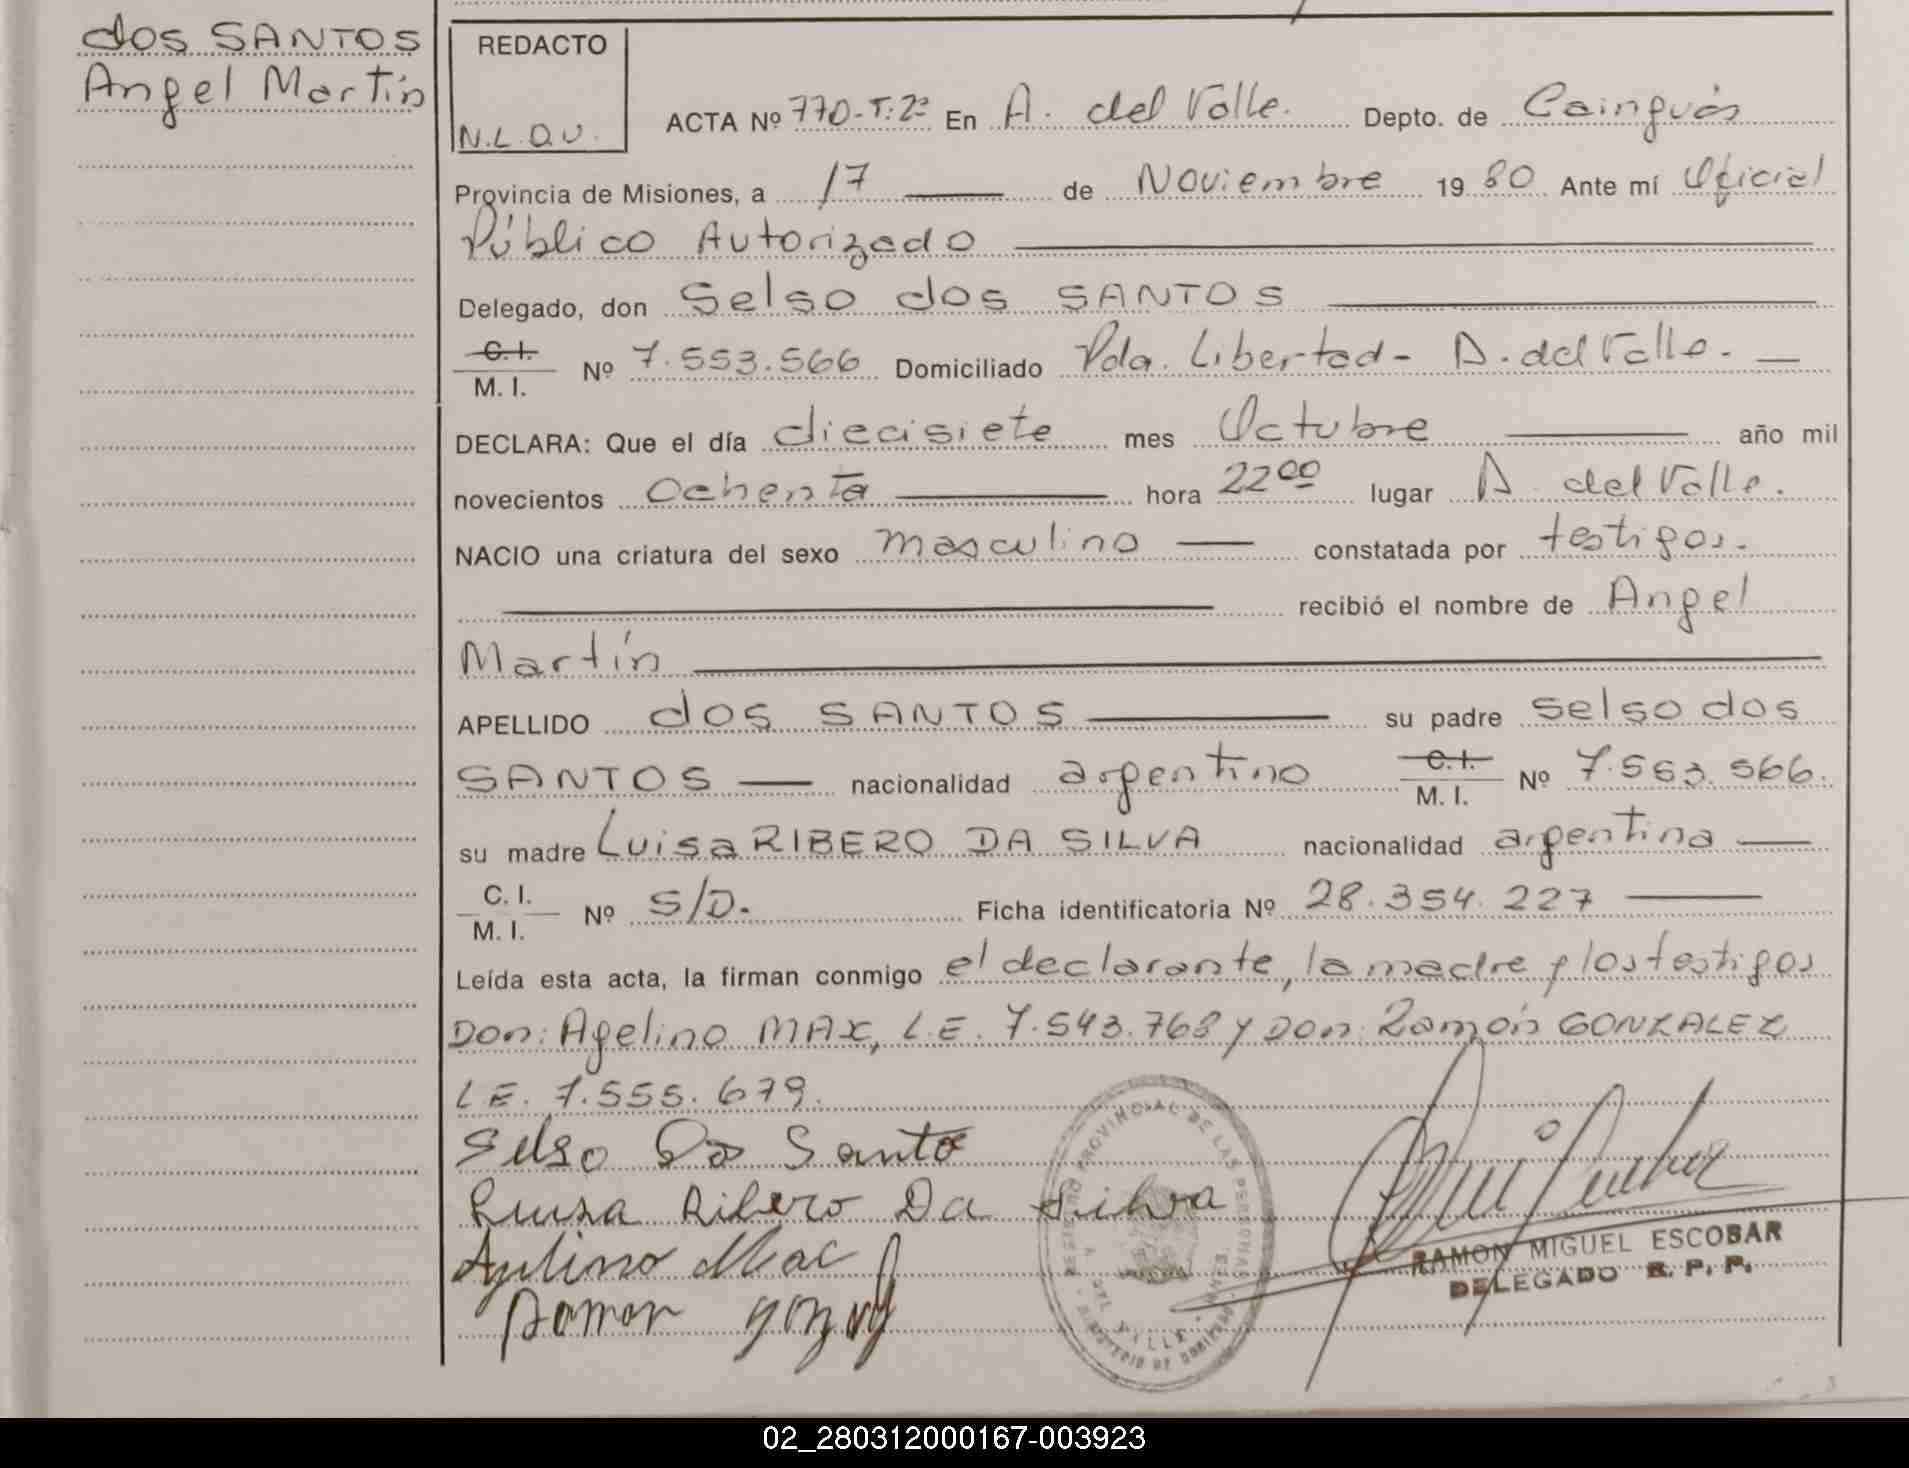 dos SANTOS
Angel Martín
REDACTO
N.L.Q.U.
ACTA Nº 770-T:2º En A. del Valle. Depto. de Cainguás
Provincia de Misiones, a 17 de Noviembre 19 80 Ante mí Oficial
Público Autorizado
Delegado, don Selso dos SANTOS
C.I. M.I. Nº 7.553.566 Domiciliado Pda. Libertad - A. del Valle.
DECLARA: Que el día diecisiete mes Octubre año mil
novecientos Ochenta hora 22⁰⁰ lugar A. del Valle.
NACIO una criatura del sexo masculino constatada por testigos.
recibió el nombre de Angel
Martín
APELLIDO dos SANTOS su padre Selso dos
SANTOS nacionalidad argentino C.I. M.I. Nº 7.553.566.
su madre Luisa RIBERO DA SILVA nacionalidad argentina
C.I. M.I. Nº S/D. Ficha identificatoria Nº 28.354.227
Leída esta acta, la firman conmigo el declarante, la madre y los testigos
Don: Agelino MAX, L.E. 7.543.768 y Don: Ramón GONZALEZ
L.E. 7.555.679.
Selso Dos Santo
Luisa Ribero Da Silva
Agelino Mac
Ramon
REGISTRO PROVINCIAL DE LAS PERSONAS
A. DEL VALLE
RAMON MIGUEL ESCOBAR
DELEGADO R. P. P.
02_280312000167-003923